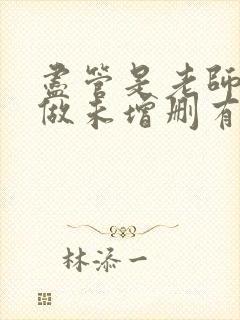 盡管是老師
做未增刪有
林添一